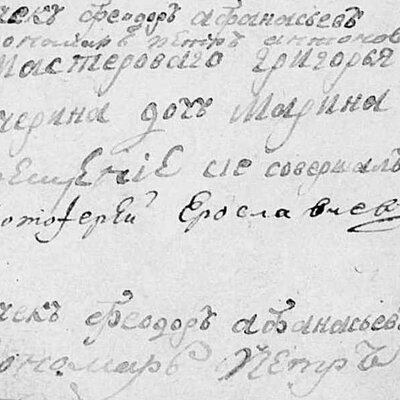 ячекъ феодоръ афанасьевъ
пономарь петръ антонов
мастероваго григорья
черина дочь марина
крещение сие совершалъ
Протоиерей Ерославцев
ячекъ феодоръ афанасьев
пономарь Петръ